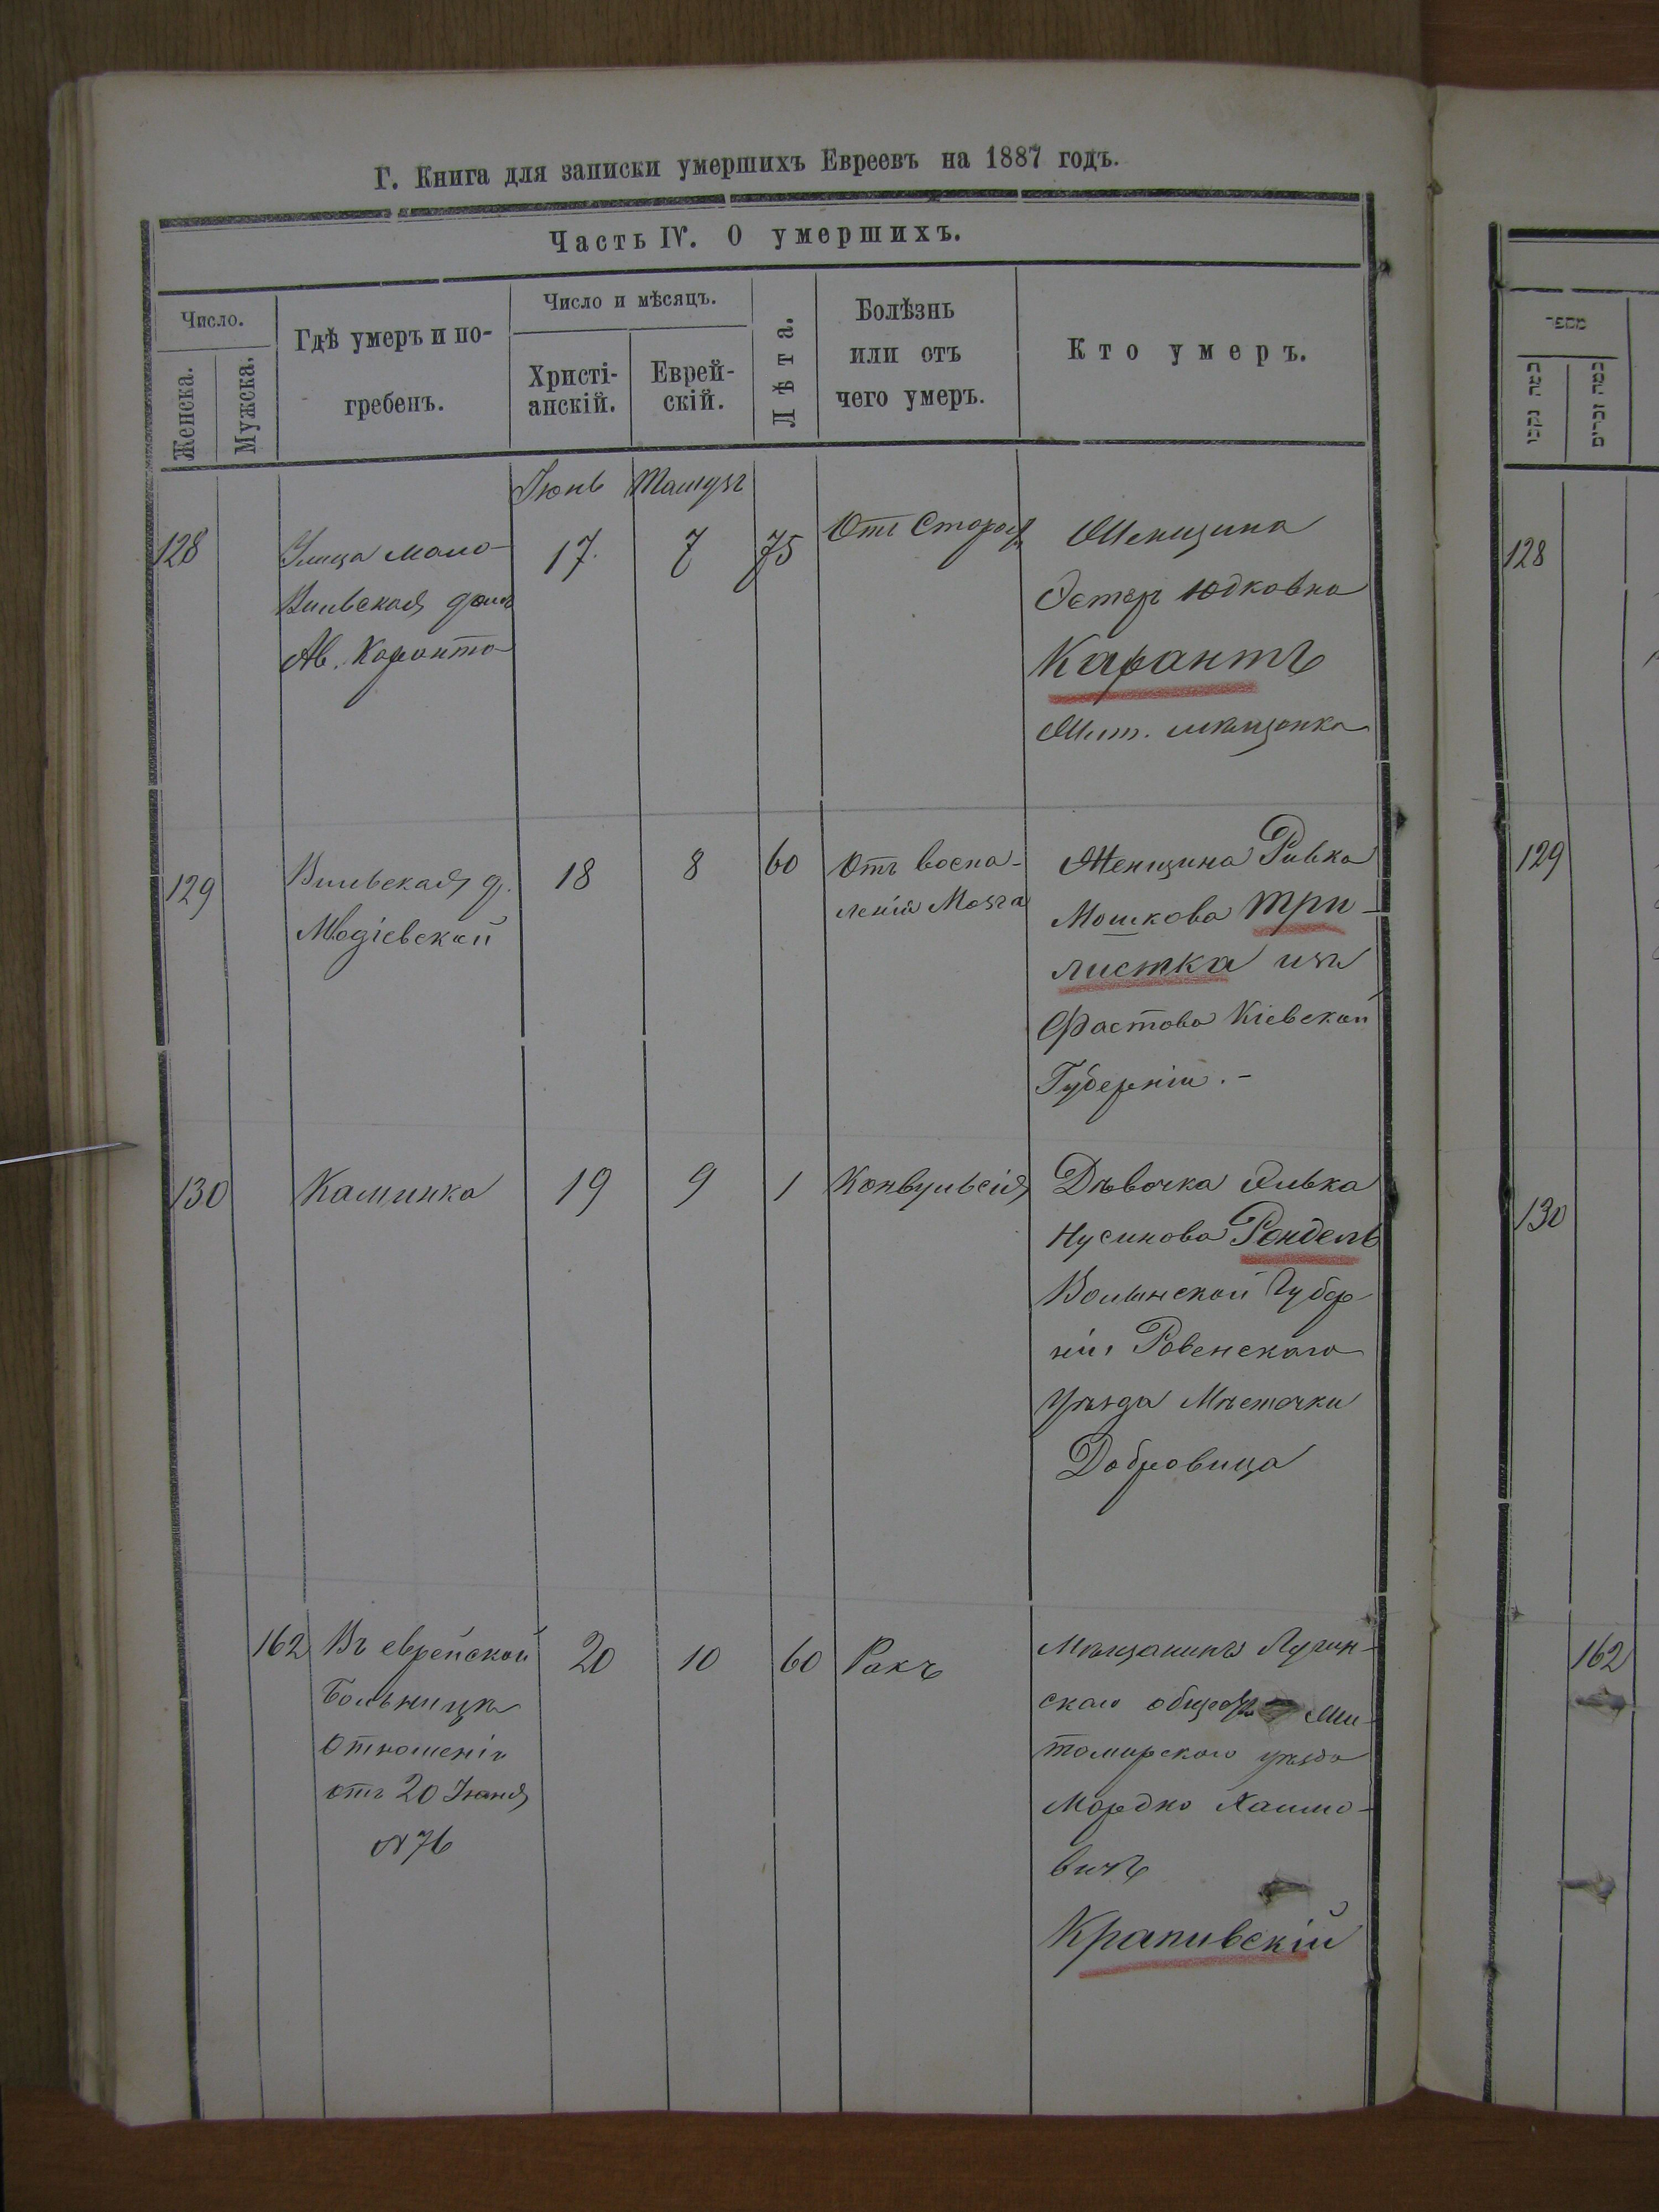 Г. Книга для записки умершихъ Евреевъ на 1887 годъ.
Часть IV. О умершихъ.
Число.
Женска.
Мужска.
Гдѣ умеръ и по-
гребенъ.
Число и мѣсяцъ.
Христі-
анскій.
Еврей-
скій.
Лѣта.
Болѣзнь
или отъ
чего умеръ.
Кто умеръ.
Іюнь Тамузъ
128
Улица Мало-
Вильская домъ
Ав. Каранта
17.
7
75
Отъ
Женщина
Эстеръ Юдковна
Карантъ
Жит. мѣщанка
129
Вильская д.
18
8
60
Отъ воспа-
ленія Мозга
Женщина Ривка
Мошкова Три-
листка изъ
Фастова Кіевской
Губерніи.-
130
Каминка
19
9
1
Конвульсія
Дѣвочка Ривка
Нусинова Рендель
Волынской Губер-
ніи Ровенскаго
Уѣзда Мѣстечки
Добровица
162
Въ еврейской
Больницѣ
Отношенія
отъ 20 Іюня
№ 76
20
10
60
Ракъ
Мѣщанинъ Лугин-
скаго Жи-
томирскаго уѣзда
Мордко Хаимо-
вичъ
Крапивскій
מספר
128
129
130
162